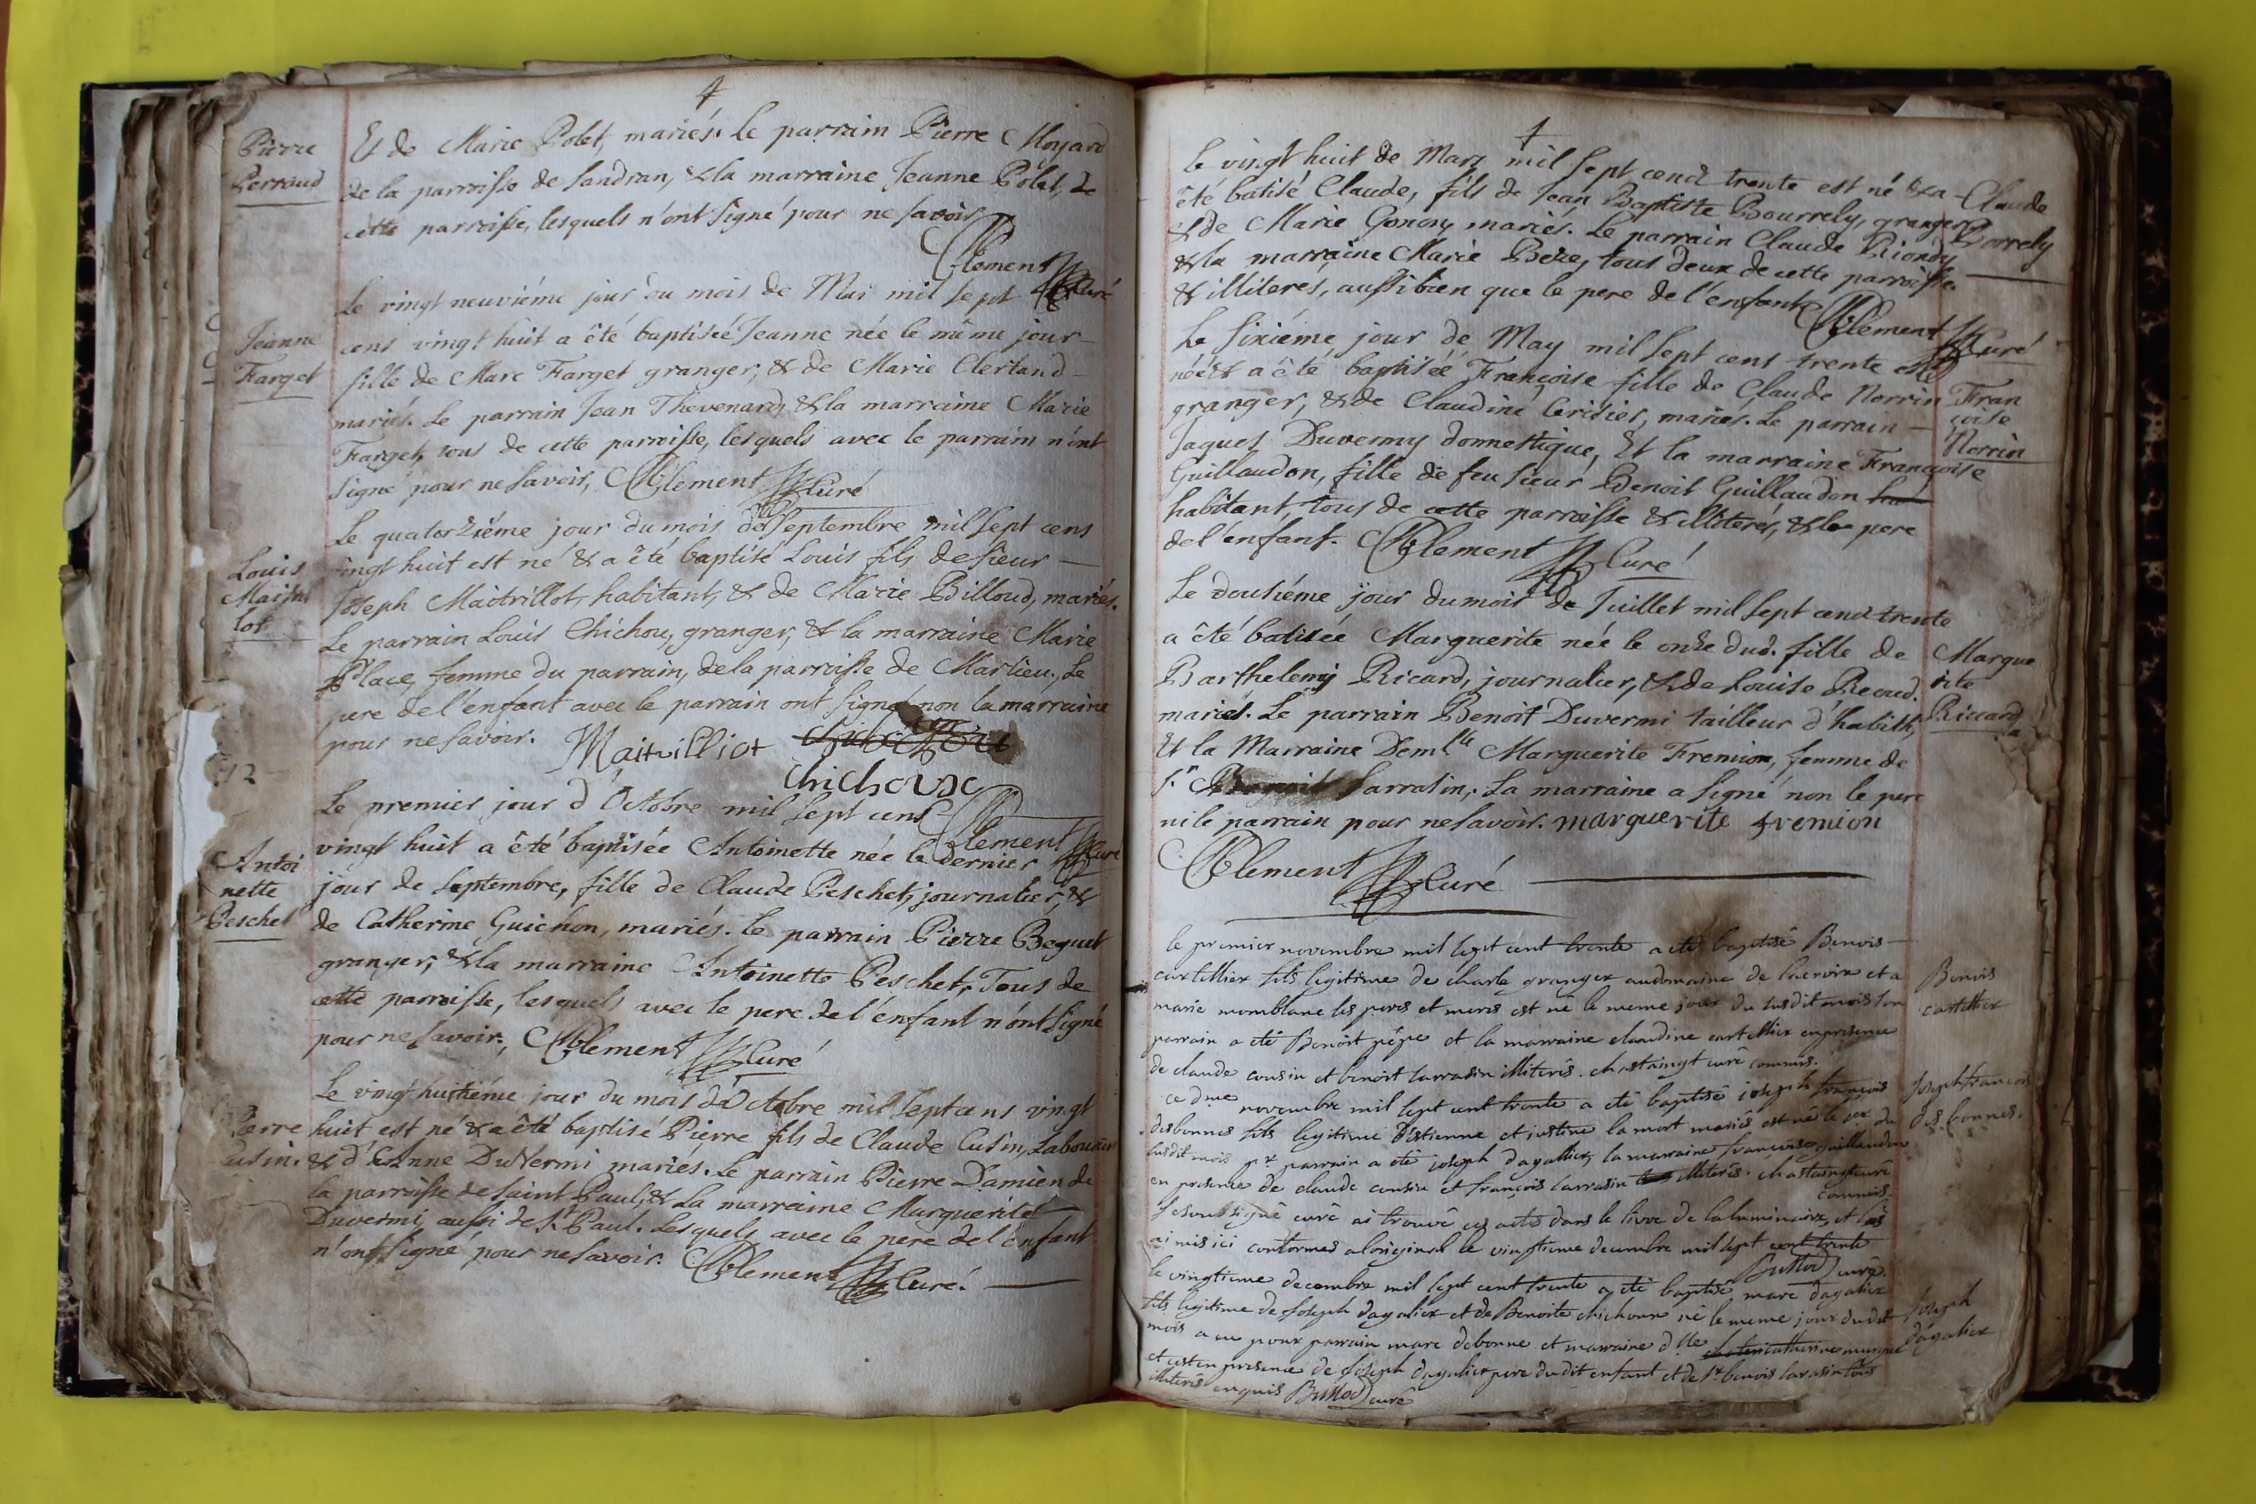 4
Pierre
Perraud
Et de Marie Polet, mariés. Le parrain Pierre Moyard
de la parroisse de Sandran, & la marraine Jeanne Polet, de
cette parroisse, lesquels n'ont signé pour ne savoir
Clement Curé
Jeanne
Farget
Le vingt neuviéme jour du mois de Mai mil sept
cens vingt huit a été baptiseé Jeanne née le même jour
fille de Marc Farget granger, & de Marie Clertand
mariés. Le parrain Jean Thevenard, & la marraine Marie
Farget, tous de cette parroisse, lesquels avec le parrain n'ont
signé pour ne savoir, Clement Curé
Louis
Le quatorziéme jour du mois de Septembre mil sept cens
vingt huit est né & a été baptisé Louis fils de sieur
Joseph Maitrillot, habitant, & de Marie Billoud, mariés.
Le parrain Louis Chichou, granger, & la marraine Marie
Place, femme du parrain, de la parroisse de Marlieu, Le
pere de l'enfant avec le parrain ont signé non la marraine
pour ne savoir. Maitrilliot
chichoux
12
Clement Curé
Antoi
nette
Peschet
Le premier jour d'Octobre mil sept cens
vingt huit a été baptisée Antoinette née le dernier
jour de Septembre, fille de Claude Peschet, journalier, &
de Catherine Guichon, mariés. le parrain Pierre Beguet
granger, & la marraine Antoinette Peschet, Tous de
cette parroisse, lesquels avec le pere de l'enfant n'ont signé
pour ne savoir, Clement Curé
Pierre
Cusin.
Le vingt huitiéme jour du mois d'Octobre mil sept cens vingt
huit est né & a été baptisé Pierre fils de Claude Cusin, Laboureur
& d'Anne DuVermi mariés. Le parrain Pierre Damien de
la parroisse de Saint Paul, & La marraine Marguerite
Duvermi aussi de St Paul. Lesquels avec le pere de l'enfant
n'ont signé pour ne savoir. Clement Curé.
4
Le vingt huit de Mars mil sept cent trente est né & a
été batisé Claude, fils de Jean Baptiste Bourrely, granger,
& de Marie Gonon, mariés. Le parrain Claude Riondy
& la marraine Marie Beze, tous deux de cette parroisse
& illiteres, aussi bien que le pere de l'enfant Clement Curé
Claude
Borrely
Le sixiéme jour de May mil sept cens trente est
née & a été baptisée Françoise fille de Claude Norrin
granger, & de Claudine Cerisier, mariés. Le parrain
Jaques Duvermy domestique, Et la marraine Françoise
Guillaudon, fille de feu sieur Benoit Guillaudon
habitant, tous de cette parroisse & illiterés, & le pere
de l'enfant. Clement Curé
Fran
çoise
Norrin
Le douziéme jour du mois de Juillet mil sept cent trente
a été batisée Marguerite née le onze dud. fille de
Barthelemy Ricard, journalier, & de Louise Recoud.
mariés. Le parrain Benoit Duvermi tailleur d'habits,
Et la Marraine Demlle Marguerite Fremion, femme de
sr Benoit Sarrasin, La marraine a signé non le pere
ni le parrain pour ne savoir. marguerite fremion
Clement Curé
Margue
rite
Riccard
le premier novembre mil sept cent trente a été baptisé Benois
cartellier fils legitime de charle granger au domaine de lacroix et a
marie momblanc les peres et meres est né le meme jour du susdit mois son
parrain a été Benoit pépe et la marraine claudine cartellier en presence
de claude cousin et benoit sarrasin illiterés. chastaingt curé commis.
Benois
cartellier
ce dme novembre mil sept cent trente a été baptisé joseph françois
desbonnes fils legitime d'estienne et justine la mort mariés est né le 1er du
susdit mois pr parrain a été joseph dagallier, la marraine françoise guillaudon
en presence de claude cousin et françois sarrasin illiterés. chastaingt curé
commis.
Joseph françois
desbonnes.
Je soussigné curé ai trouvé ces actes dans le livre de la luminaire, et les
ai mis ici conformes a loriginal le vingtieme decembre mil sept cent trente
curé.
le vingtieme decembre mil sept cent trente a été baptisé marc dagalier
fils legitime de Joseph dagalier et de Benoite chichoux né le meme jour dudit
mois a eu pour parrain marc debonne et marraine dlle catherine
et ce en presence de Joseph dagalier pere dudit enfant et de sr benois sarasin tous
illiterés enquis curé
Joseph
dagalier